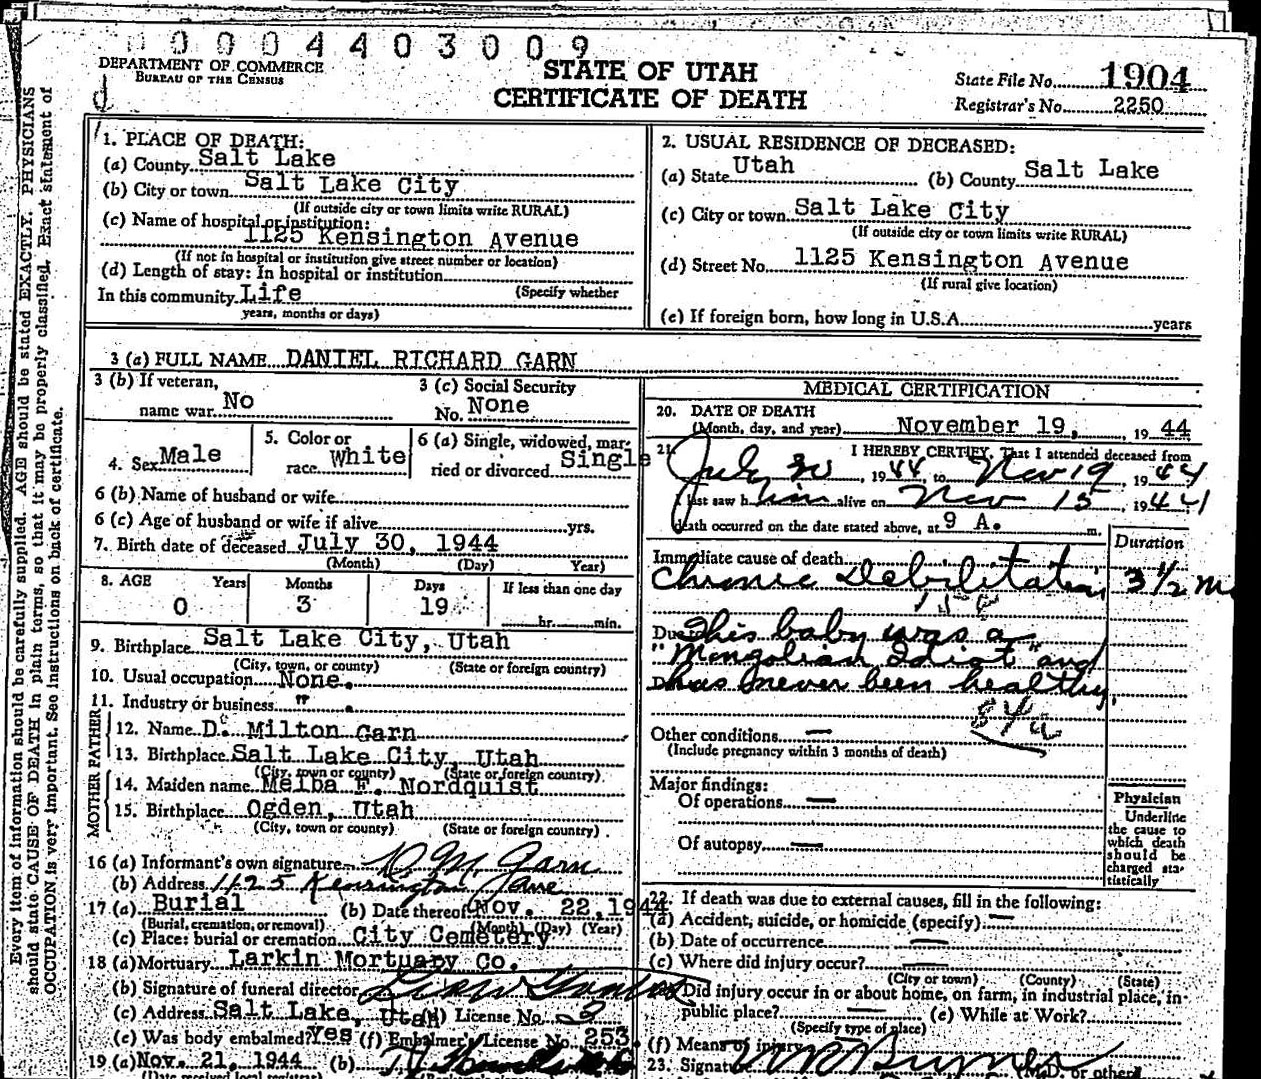 0 0 0 0 4 4 0 3 0 0 9
DEPARTMENT OF COMMERCE
BUREAU OF THE CENSUS
STATE OF UTAH
CERTIFICATE OF DEATH
State File No. 1904
Registrar's No. 2250
Every item of information should be carefully supplied. AGE should be stated EXACTLY. PHYSICIANS
should state CAUSE OF DEATH in plain terms, so that it may be properly classified. Exact statement of
OCCUPATION is very important. See instructions on back of certificate.
1. PLACE OF DEATH:
(a) County Salt Lake
(b) City or town Salt Lake City
(If outside city or town limits write RURAL)
(c) Name of hospital or institution:
1125 Kensington Avenue
(If not in hospital or institution give street number or location)
(d) Length of stay: In hospital or institution
In this community Life (Specify whether
years, months or days)
2. USUAL RESIDENCE OF DECEASED:
(a) State Utah (b) County Salt Lake
(c) City or town Salt Lake City
(If outside city or town limits write RURAL)
(d) Street No. 1125 Kensington Avenue
(If rural give location)
(e) If foreign born, how long in U.S.A. years
3 (a) FULL NAME DANIEL RICHARD GARN
3 (b) If veteran,
name war No
3 (c) Social Security
No. None
4. Sex Male
5. Color or
race White
6 (a) Single, widowed, mar-
ried or divorced Single
6 (b) Name of husband or wife
6 (c) Age of husband or wife if alive yrs.
7. Birth date of deceased July 30, 1944
(Month) (Day) Year)
8. AGE Years Months Days If less than one day
0 3 19 hr. min.
9. Birthplace Salt Lake City, Utah
(City, town, or county) (State or foreign country)
10. Usual occupation None.
11. Industry or business " .
FATHER
12. Name D. Milton Garn
13. Birthplace Salt Lake City, Utah
(City, town or county) (State or foreign country)
MOTHER
14. Maiden name Melba F. Nordquist
15. Birthplace Ogden, Utah
(City, town or county) (State or foreign country)
16 (a) Informant's own signature D M Garn
(b) Address 1125 Kensington Ave
17 (a) Burial (b) Date thereof Nov. 22, 1944
(Burial, cremation, or removal) (Month) (Day) (Year)
(c) Place: burial or cremation City Cemetery
18 (a) Mortuary Larkin Mortuary Co.
(b) Signature of funeral director
(c) Address Salt Lake, Utah (d) License No.
(e) Was body embalmed? Yes (f) Embalmer's License No. 253
19 (a) Nov. 21, 1944 (b)
(Date received local registrar)
MEDICAL CERTIFICATION
20. DATE OF DEATH
(Month, day, and year) November 19, 19 44
21. I HEREBY CERTIFY, That I attended deceased from
July 30, 1944, to Nov 19, 1944
I last saw him alive on Nov 15 1944
death occurred on the date stated above, at 9 A. m.
Duration
Immediate cause of death
Chronic Debilitation 3 1/2 M
Due to This baby was a
"Mongolian Idiot" and
Due has never been healthy.
Other conditions —
(Include pregnancy within 3 months of death)
Major findings:
Of operations —
Of autopsy —
Physician
Underline
the cause to
which death
should be
charged sta-
tistically
22. If death was due to external causes, fill in the following:
(a) Accident, suicide, or homicide (specify) —
(b) Date of occurrence —
(c) Where did injury occur? —
(City or town) (County) (State)
Did injury occur in or about home, on farm, in industrial place, in
public place? — (e) While at Work?
(Specify type of place)
(f) Means of injury
23. Signature (M.D. or other)